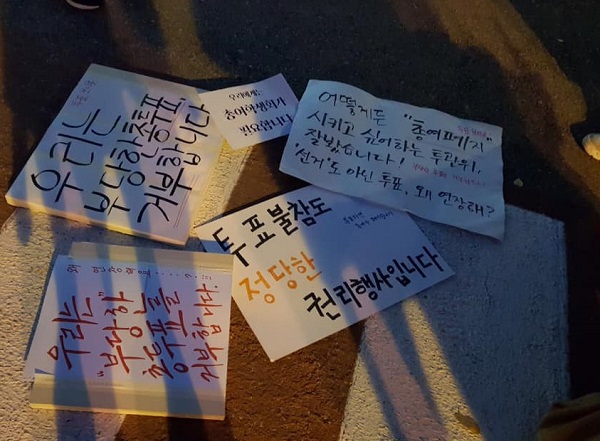 우리는
부당한 총투표,
거부합니다
우리에게는
총여학생회가
필요합니다
어떻게든 "총여폐기지"
시키고 싶어하는 투관위,
잘 봤습니다!
'선거'도 아닌 투표, 왜 연장해?
투표 불참도
정당한
권리행사입니다
우리는
"부당한"
총투표를
거부합니다